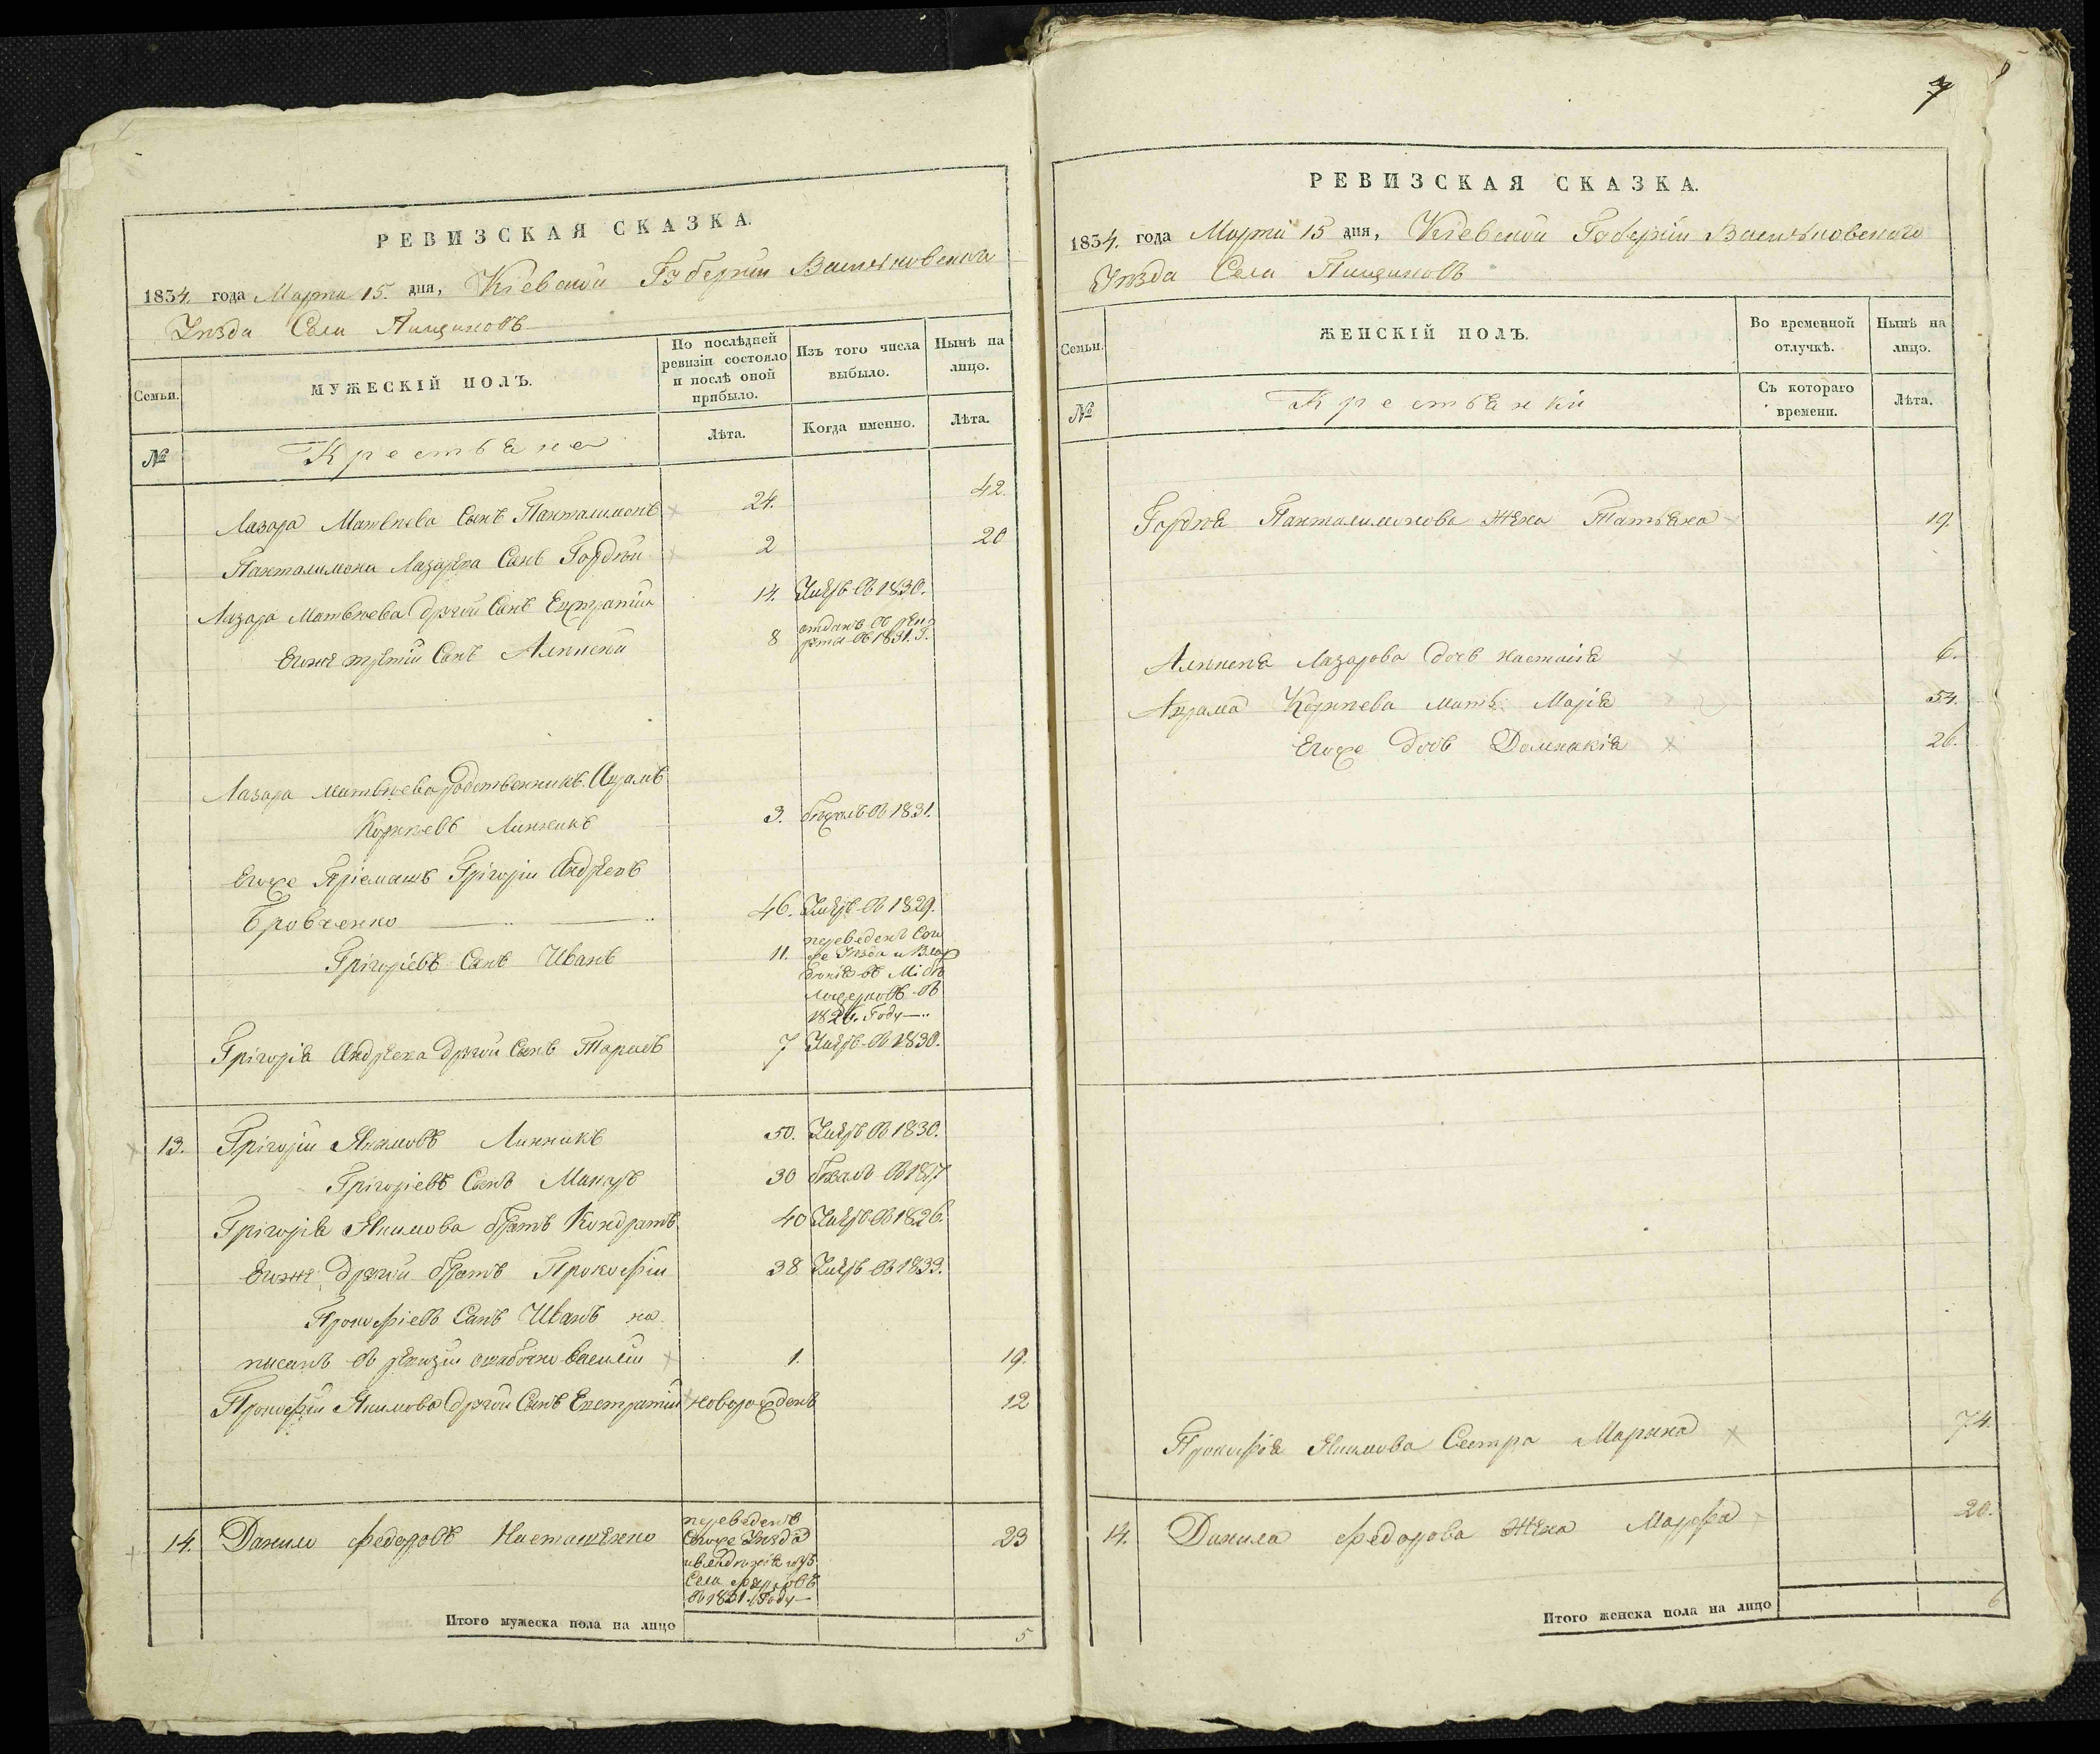 РЕВИЗСКАЯ СКАЗКА.
1834. года Марта 15. дня, Кіевской Губерніи Васильковскаго
Уѣзда Села Пищиковъ
Семьи.
МУЖЕСКІЙ ПОЛЪ.
По послѣдней ревизіи состояло и послѣ оной прибыло.
Изъ того числа выбыло.
Нынѣ на лицо.
№
Крестьяне
Лѣта.
Когда именно.
Лѣта.
Лазара Матвѣева Сынъ Панталимонъ 24. 42.
Панталимона Лазарева Сынъ Гордѣй 2 20
Лазара Матвѣева другой Сынъ Евстратій 14. Умеръ въ 1830.
Егоже третій Сынъ Алексѣй 8 отданъ въ рекруты въ 1831. Г.
Лазара Матвѣева родственникъ Абрамъ
Корнѣевъ Линникъ 3. бѣжалъ въ 1831.
Егоже Пріемышъ Григорій Андреевъ
Бровченко 46. Умеръ въ 1829.
Григоріевъ Сынъ Иванъ 11. переведенъ Того
же Уѣзда и Влад
ѣнія въ Мѣс
въ
182 . Году
Григорія Андреева другой Сынъ Тарасъ 7 Умеръ въ 1830.
13. Григорій Якимовъ Линникъ 50. Умеръ въ 1830.
Григоріевъ Сынъ Макаръ 30 бѣжалъ въ
Григорія Якимова братъ Кондратъ 40 Умеръ въ 1826.
Егоже другой братъ Прокофій 38 Умеръ въ 1833.
Прокофіевъ Сынъ Иванъ на
писанъ въ ревизіи ошибочно Василій 1. 19.
Прокофій Якимова другой Сынъ Евстратій новорожденъ 12
14. Данило Федоровъ Насташенко 23
переведенъ
Тогоже Уѣзда
и владѣнія изъ
Села
въ 1831. Году
Итого мужеска пола на лицо 5
РЕВИЗСКАЯ СКАЗКА.
1834. года Марта 15 дня, Кіевской Губерніи Васильковскаго
Уѣзда Села Пищиковъ
Семьи.
ЖЕНСКІЙ ПОЛЪ.
Во временной отлучкѣ.
Нынѣ на лицо.
№
Крестьянки
Съ котораго времени.
Лѣта.
Гордѣя Панталимонова жена Татьяна 19.
Алексѣя Лазарова дочь Настасія 6.
Абрама Корнѣева мать Марія 54.
Егоже дочь Домникія 26.
Прокофія Якимова Сестра Марина 74.
14. Данила Федорова жена Марфа 20.
Итого женска пола на лицо 6